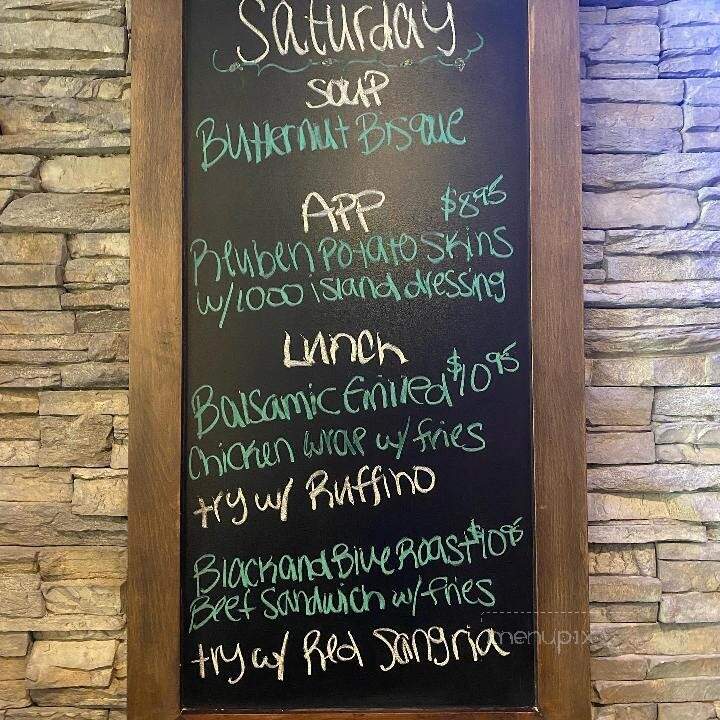 Saturday
Soup
Butternut Bisque
APP $8.95
Reuben Potato Skins
w/1000 island dressing
Lunch
Balsamic Grilled $10.95
Chicken wrap w/ fries
try w/ Ruffino
Black and Blue Roast $10.95
Beef Sandwich w/ fries
try w/ Red Sangria
menupix